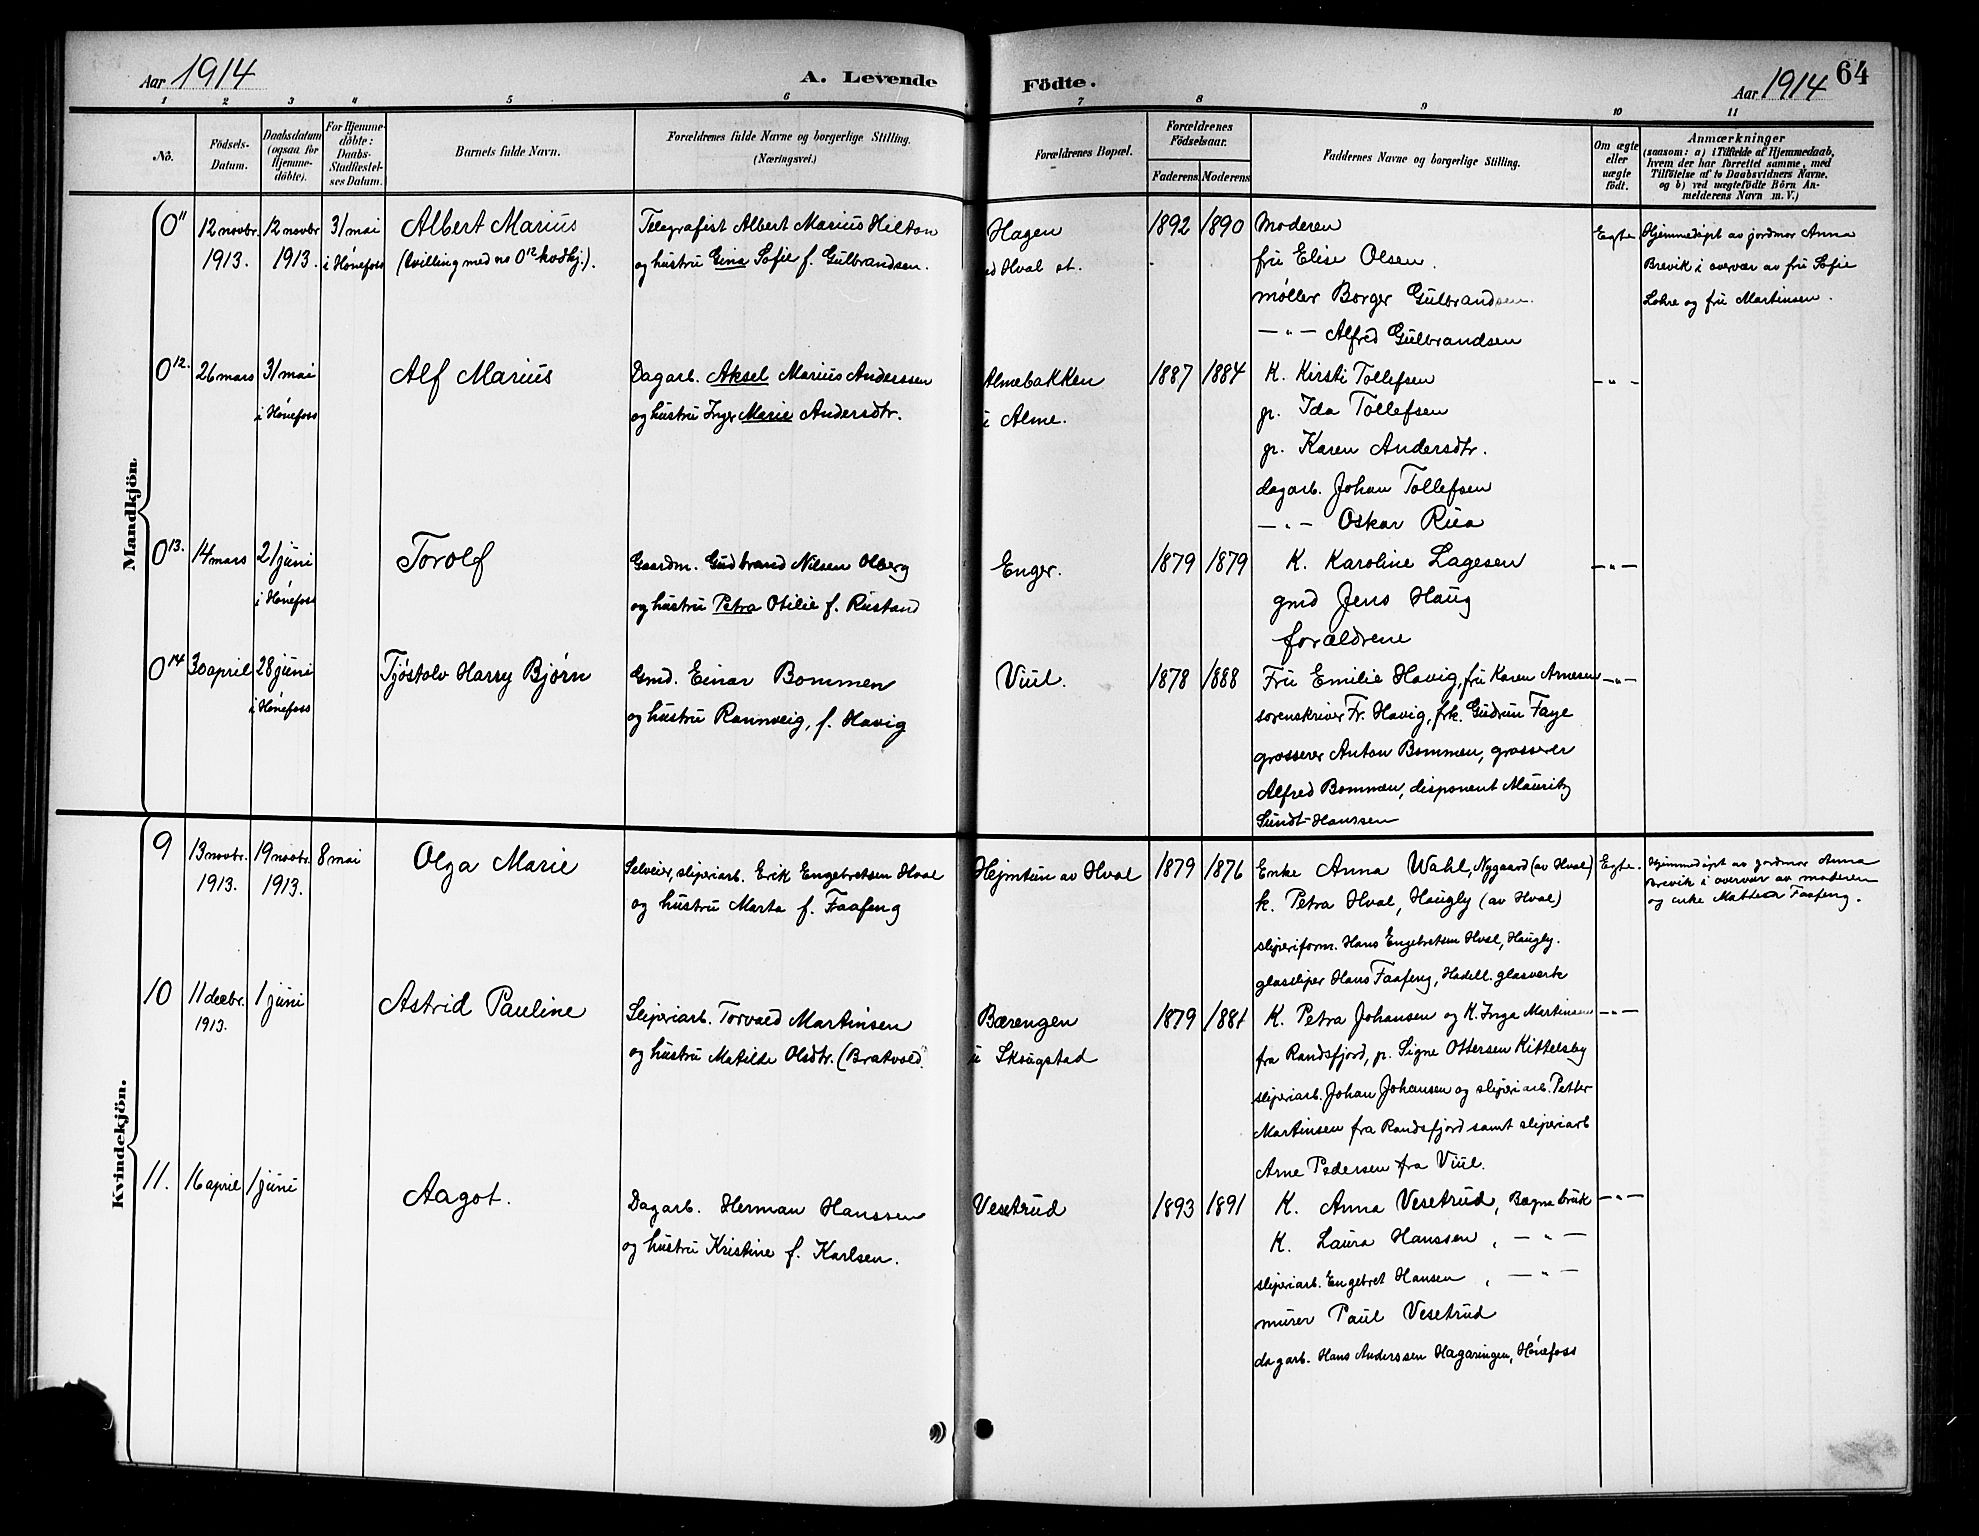 Aar 1914
A. Levende Födte.
Aar 1914
64
1 2 3 4 5 6 7 8 9 10 11
No.
Födsels-
Datum.
Daabsdatum
(ogsaa for
Hjemme-
döbte).
For Hjemme-
döbte:
Daabs-
Stadfæstel-
ses Datum.
Barnets fulde Navn.
Forældrenes fulde Navne og borgerlige Stilling.
(Næringsvei.)
Forældrenes Bopæl.
Forældrenes
Födselsaar.
Faderens Moderens
Faddernes Navne og borgerlige Stilling.
Om ægte
eller
uægte
födt.
Anmærkninger
(saasom: a) i Tilfælde af Hjemmedaab,
hvem der har forrettet samme, med
Tilföielse af to Daabsvidners Navne,
og b) ved uægtefödte Börn An-
melderens Navn m. V.)
Mandkjön
0 11
12 novbr.
1913.
12 novbr
1913.
31 mai
i Hønefoss
Albert Marius
(tvilling med no 0 12 kvdkj.).
Telegrafist Albert Marius Hilton
og hustru Gina Sofie f. Gulbrandsen.
Hagen
ved Hval st.
1892 1890
Moderen
fru Elise Olsen.
møller Borger Gulbrandsen.
— " — Alfred Gulbrandsen
Egte
Hjemmedøpt av jordmor Anna
Brevik i overvær av fru Sofie
Lohre og fru Martinsen.
0 12.
26 mars
31 mai
i Hønefoss
Alf Marius
Dagarb. Aksel Marius Anderssen
og hustru Inger Marie Andersdtr.
Almebakken
u Alme.
1887 1884
K. Kirsti Tollefsen
p. Ida Tollefsen
p. Karen Andersdtr.
dagarb. Johan Tollefsen
— " — Oskar Rua
— " —
0 13.
14 mars
21 juni
i Hønefoss
Torolf
Gaardm. Gudbrand Nilsen Olberg
og hustru Petra Otilie f. Rustand
Enger.
1879 1879
K. Karoline Lagesen
gmd Jens Haug
forældrene
— " —
0 14
30 april
28 juni
i Hønefoss
Tjøstolv Harry Bjørn
Gmd. Einar Bommen
og hustru Rannveig, f. Havig
Viul.
1878 1888
Fru Emilie Havig, fru Karen Arnesen
sorenskriver Fr. Havig, frk. Gudrun Faye
grosserer Anton Bommen, grosserer
Alfred Bommen, disponent Mauritz
Sundt-Hanssen
— " —
Kvindekjön.
9
13 novbr.
1913.
19 novbr.
1913.
8 mai
Olga Marie
Selveier, sliperiarb. Erik Engebretsen Hval
og hustru Marta f. Faafeng
Hejmtun av Hval
1879 1876
Enke Anna Wahl, Nygaard (av Hval)
k. Petra Hval, Haugly (av Hval)
sliperiform. Hans Engebretsen Hval, Haugby.
glassliper Hans Faafeng, Hadell. glasverk
Egte.
Hjemmedøpt av jordmor Anna
Brevik i overvær av moderen
og enke Mathea Faafeng.
10
11 decbr.
1913.
1 juni
Astrid Pauline
Sliperiarb. Torvald Martinsen
og hustru Matilde Olsdtr. (Bratvold).
Bærengen
u Skougstad
1879 1881
K. Petra Johansen og K. Inga Martinsen
fra Randsfjord, p. Signe Ottersen Kittelsby
sliperiarb. Johan Johansen og sliperiarb. Petter
Martinsen fra Randsfjord samt sliperiarb
Arne Pedersen fra Viul.
— " —
11.
16 april
1 juni
Aagot.
Dagarb. Herman Hanssen
og hustru Kristine f. Karlsen.
Vesetrud
1893 1891
K. Anna Vesetrud, Bægna bruk
K. Laura Hanssen, — " —
sliperiarb. Engebret Hansen, — " —
murer Paul Vesetrud
dagarb. Hans Anderssen Hagaringen, Hønefoss
— " —